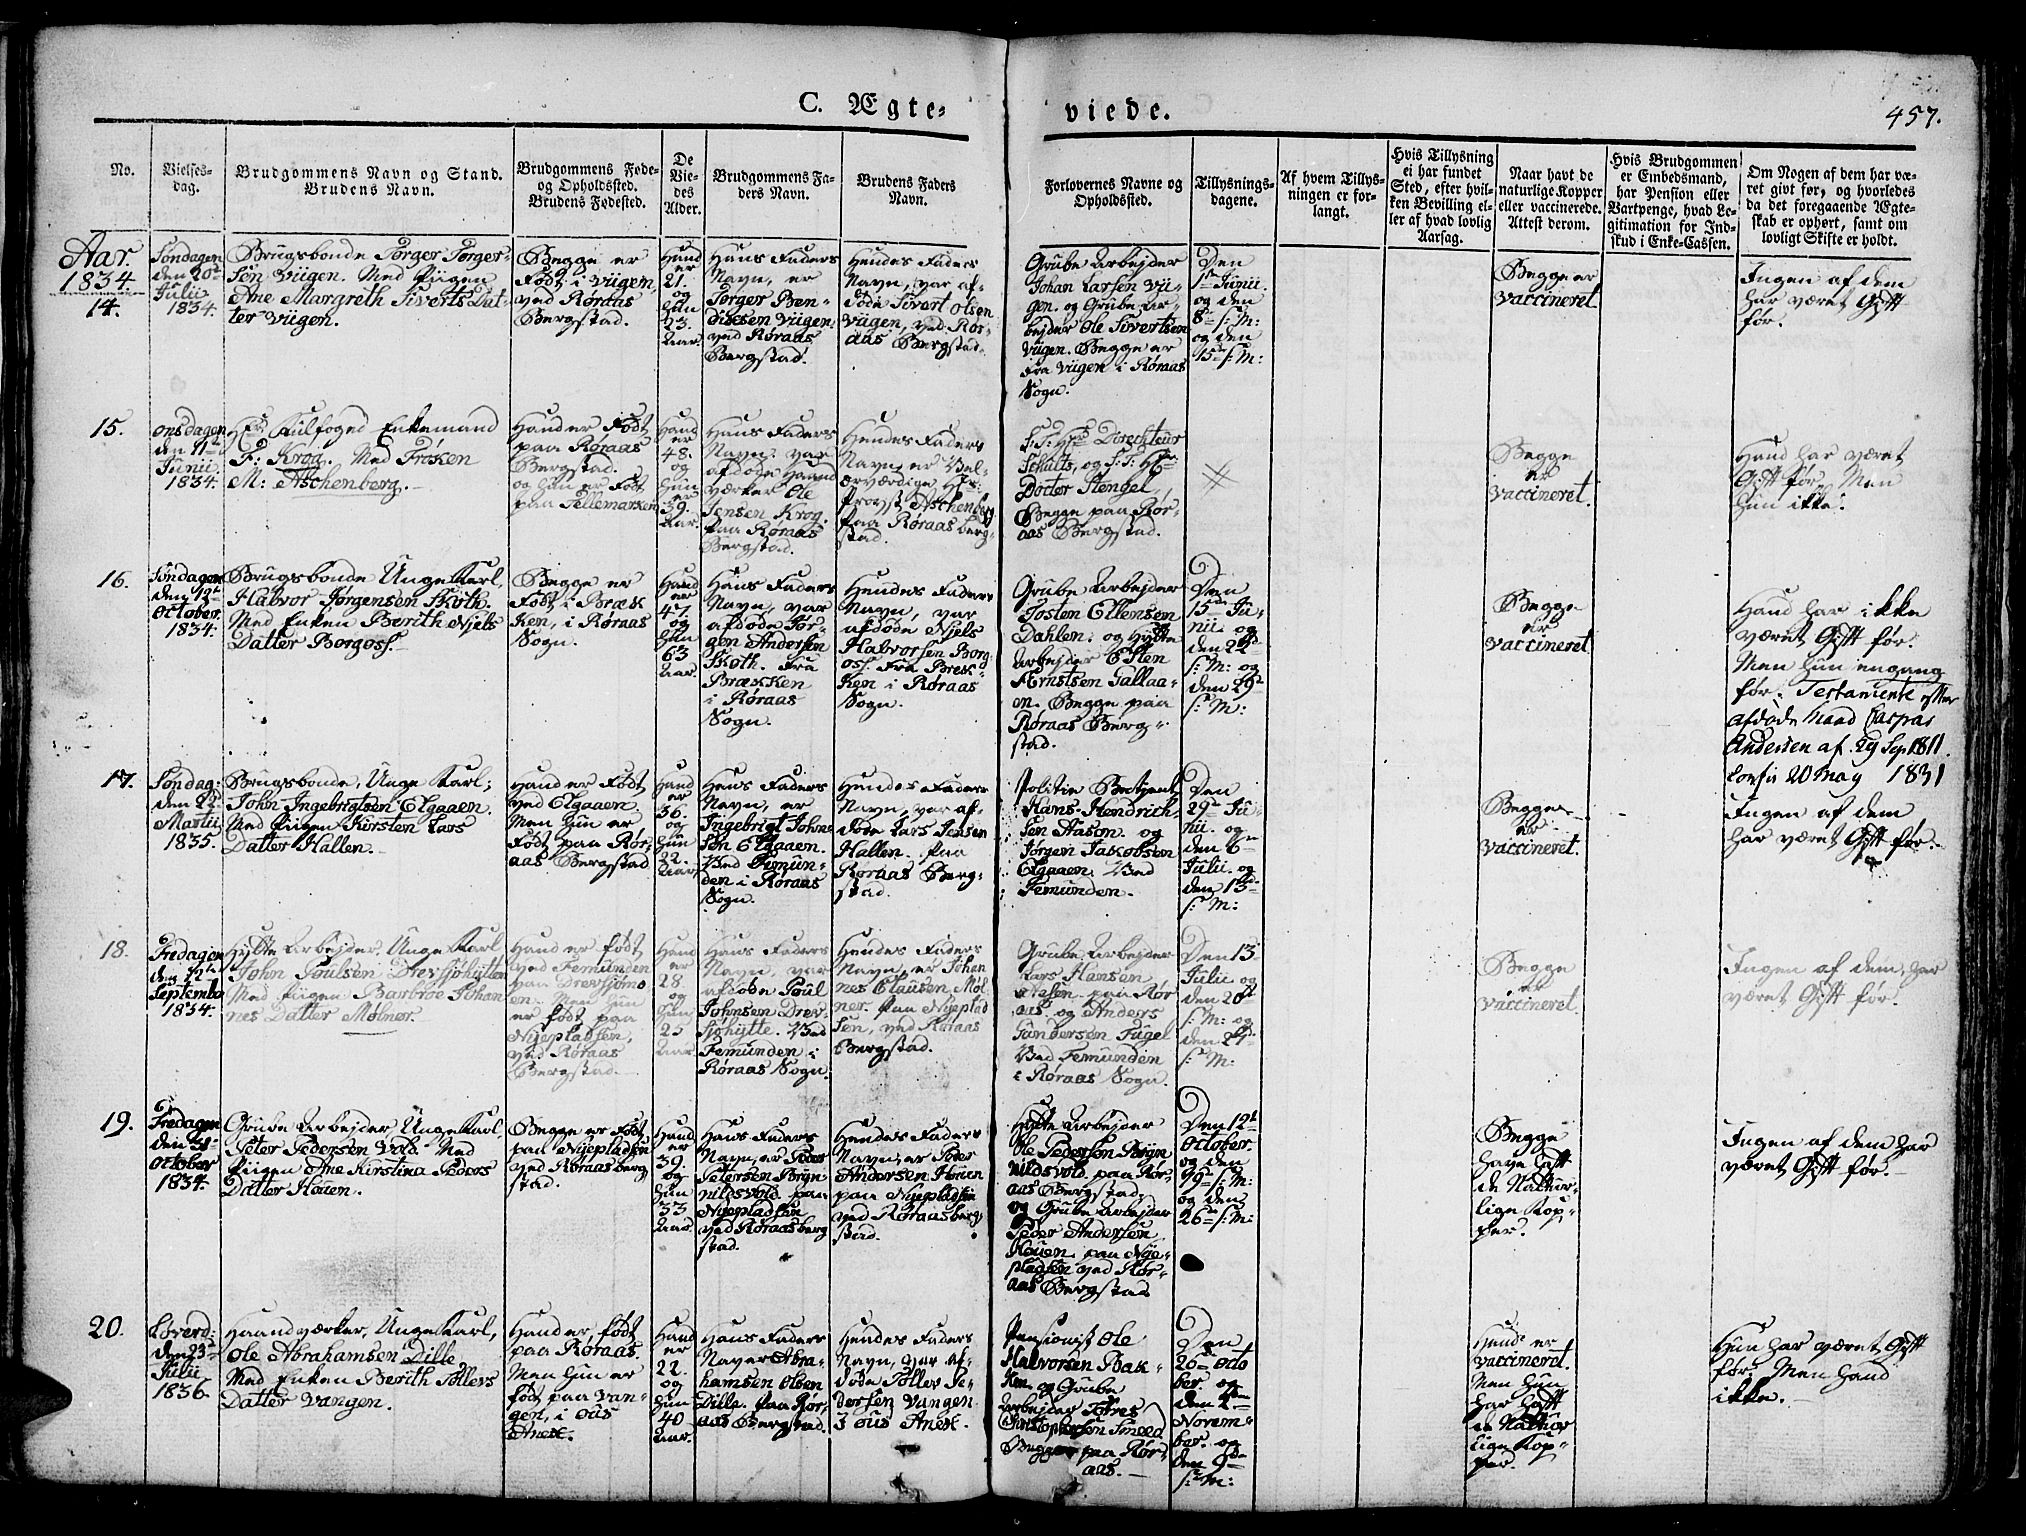 C. Ægte-
viede.
457.
No.
Vielses-
dag.
Brudgommens Navn og Stand.
Brudens Navn.
Brudgommens Føde-
og Opholdssted.
Brudens Fødested.
De
Vie-
des
Alder.
Brudgommens Fa-
ders Navn.
Brudens Faders
Navn.
Forlovernes Navne og
Opholdssted.
Tillysnings-
dagene.
Af hvem Tillys-
ningen er for-
langt.
Hvis Tillysning
ei har fundet
Sted, efter hvil-
ken Bevilling el-
ler af hvad lovlig
Aarsag.
Naar havt de
naturlige Kopper
eller vaccinerede.
Attest derom.
Hvis Brudgommen
er Embedsmand,
har Pension eller
Vartpenge, hvad Le-
gitimation for Ind-
skud i Enke-Cassen.
Om Nogen af dem har væ-
ret givt før, og hvorledes
da det foregaaende Ægte-
skab er ophørt, samt om
lovligt Skifte er holdt.
Aar.
1834.
14.
Søndagen
den 20de
Julii
1834.
Brugsbonde Törger Törger-
sön Viigen. Med Piigen
Ane Margreth Siverts Dat-
ter Viigen.
Begge er
Født i Viigen,
ved Röraas
Bergstad.
Hand
er
21.
og
Hun
23.
Aar.
Hans Faders
Navn, er
Törger Ben-
dixsen Viigen.
ved Röraas
Bergstad.
Hendes Faders
Navn, var af-
døde Sivert Olsen
Viigen, ved Rör-
aas Bergstad.
Grube Arbejder
Johan Larsen Vii-
gen. og Grube Ar-
bejder Ole Sivertsen
Viigen. Begge er
fra Viigen i Røraas
Sogn.
Den
1ste Junii.
og den
8de s: M:
og den
15de s: M:
Begge er
vaccineret.
Ingen af dem
har været Gift
før.
15.
Onsdagen
den 11te
Junii
1834.
Hr Kulfoged Enkemand
P: Krog. Med Frøken
M: Aschenberg.
Hand er Født
paa Røraas
Bergstad.
og hun er Født
paa Tellemarken
Hand
er
48.
og
Hun
er
39.
Aar.
Hans Faders
Navn, var
afdøde Haand
værker Ole
Jensen Krog.
paa Røraas
Bergstad.
Hendes Faders
Navn, er Vel-
ærværdige Hr:
Provst Aschenberg
paa Røraas Berg-
stad.
S: T: Hr Directeur
Schults, og S: T: Hr
Docter Stengel,
Begge paa Rør-
aas Bergstad.
Begge
er
vaccineret.
Hand har været
Gift før, Men
Hun ikke.
16.
Søndagen
den 12te
October.
1834.
Brugsbonde Unge Karl,
Halvor Jørgensen Skoth.
Med Enken Berith Njels
Datter Borgos.
Begge er
Født i Bræk
ken, i Røraas
Sogn.
Hand
er
47.
og
Hun
63
Aar.
Hans Faders
Navn, var
afdøde Jør-
gen Andersen
Skoth. Fra
Brækken
i Røraas
Sogn.
Hendes Faders
Navn, var
afdøde Njels
Halvorsen Borg-
os. Fra Bræk-
ken i Røraas
Sogn.
Grube Arbejder
Josten Ellensen
Dahlen. og Hytte
Arbejder Esten
Arntsen Gallaa-
en. Begge paa
Røraas Berg-
stad.
Den
15de Ju-
nii. og
den 22de
s: M: og
den 29de
s: M:
Begge
er
vaccineret.
Hand har ikke
været Gift før.
Men hun engang
før. Testamente efter
afdøde Mand Caspar
Andersen af 29 Sep 1811.
Confir 20 May 1831
17.
Søndag:
den 22de
Martii
1835.
Brugsbonde, Unge Karl;
John Ingebrigtsen Elgaaen.
Med Piigen Kirsten Lars
Datter Hallen.
Hand er Født
ved Elgaaen.
Men hun er
Født paa Rør-
aas Bergstad
Hand
er
36.
og
Hun
22.
Aar.
Hans Faders
Navn, er
Ingebrigt John-
søn Elgaaen.
Ved Femun-
den i Røraas
Sogn.
Hendes Faders
Navn, var af-
døde Lars Jensen
Hallen. paa
Røraas Berg-
stad.
Politie Betjent
Hans Hendrich-
sen Aason. og
Jørgen Jakobsen
Elgaaen. Ved
Femunden.
Den
29de Ju-
nii. og
den 6te
Julii. og
den 13de
s: M:
Begge
er
vaccineret.
Ingen af dem
har været Gift før.
18.
Fredagen
den 12te
Septembr.
1834.
Hytte Arbejder, Unge Karl
John Poulsen Drevsjøhytten
Med Piigen Barbroe Johan
nes Datter Molner.
Hand er født
ved Femunden
paa Drevsjømo
en. Men hun
er født paa
Nyepladsen,
ved Røraas
Bergstad.
Hand
er
28.
og
Hun
25
Aar.
Hans Faders
Navn, var
afdøde Poul
Johnsen Drev-
sjøhytte. Ved
Femunden i
Røraas Sogn.
Hendes Faders
Navn, er Johan
nes Clausen Mol-
ner. paa Nyeplad
sen, ved Røraas
Bergstad.
Grube Arbejder
Lars Hansen
Aasen. paa Rør
aas. og Anders
Gundersen Fugel
Ved Femunden
i Røraas Sogn.
Den 13
Julii og
den 20de
s: M: og
den 27de
s: M:
Begge
er
vaccineret.
Ingen af dem, har
været Gift før.
19.
Fredagen
den 31te
October
1834.
Grube Arbejder Unge Karl,
Peter Pedersen Vold. Med
Piigen Ane Kirstina Peders
Datter Houen.
Begge er Født
paa Nyepladsen
ved Røraas berg
stad.
Hand
er
39.
og
Hun
33
Aar.
Hans Faders
Navn, er Peder
Petersen Røgn
nildsvold. paa
Nyepladsen
ved Røraas berg
stad.
Hendes Faders
Navn, er Peder
Andersen Houen
paa Nyepladsen
ved Røraas berg
stad.
Hytte Arbejder
Ole Pedersen Røgn
nildsvold. paa Rør-
aas Bergstad.
og Grube Arbejder
Peder Andersen
Houen. paa Nye-
pladsen ved Rør-
aas Bergstad
Den 12te
October.
og den
19de s: M:
og den
26de s: M:
Begge
have haft
de Natuur-
lige Kop-
per.
Ingen af dem har
været Gift før.
20.
Løverd:
den 23de
Julii
1836.
Haandværker, Unge Karl,
Ole Abrahamsen Dille.
Med Enken Berith Tollevs
Datter Vangen.
Hand er, født
paa Røraas.
Men hun er
født paa Van-
gen, i Ous
Anex.
Hand
er
22.
og
Hun
40
Aar.
Hans Faders
Navn er Abra-
hamsen Olsen
Dille. paa Rør-
aas Bergstad.
Hendes Faders
Navn, var af-
døde Tollev Pe-
dersen Vangen.
I Ous Anex.
Pensionist Ole
Halvorsen Bak-
ken. og Grube
Arbejder Tøres
Christophersen Smeed
Begge paa Rør-
aas.
Den
26de Octo
ber. og
den 2den
Novem-
ber. og
den 9de
s: M:
Hand er
vaccineret.
Men hun
har haft
de Natuur
lige Kop-
per.
Hun har været Gift
før. Men hand
ikke.